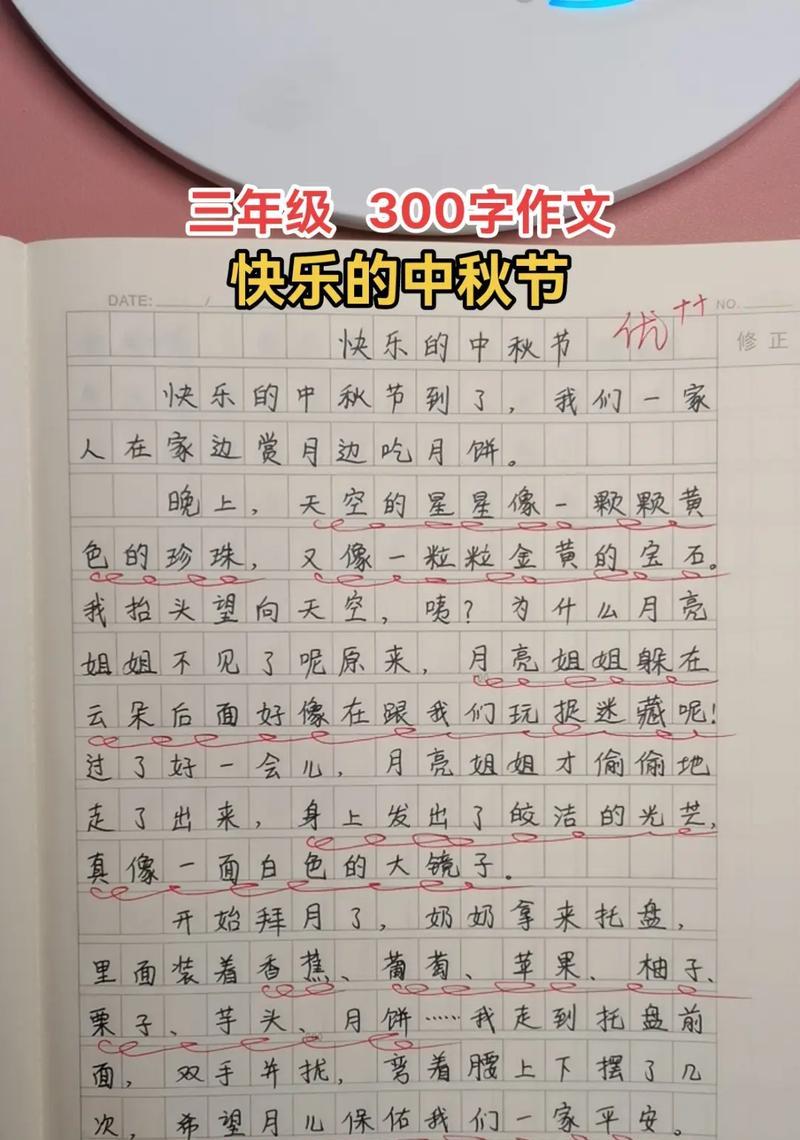 三年级 300字作文
快乐的中秋节
DATE: /
NO.
快乐的中秋节
优++
修正
快乐的中秋节到了，我们一家
人在家边赏月边吃月饼。
晚上，天空的星星像一颗颗黄
色的珍珠，又像一粒粒金黄的宝石。
我抬头望向天空，咦？为什么月亮
姐姐不见了呢原来，月亮姐姐躲在
云朵后面好像在跟我们玩捉迷藏呢！
过了好一会儿，月亮姐姐才偷偷地
走了出来，身上发出了皎洁的光芒，
真像一面白色的大镜子。
开始拜月了，奶奶拿来托盘，
里面装着香蕉、葡萄、苹果、柚子、
栗子、芋头、月饼……我走到托盘前
面，双手并拢，弯着腰上下摆了几
次，希望月儿保佑我们一家平安。